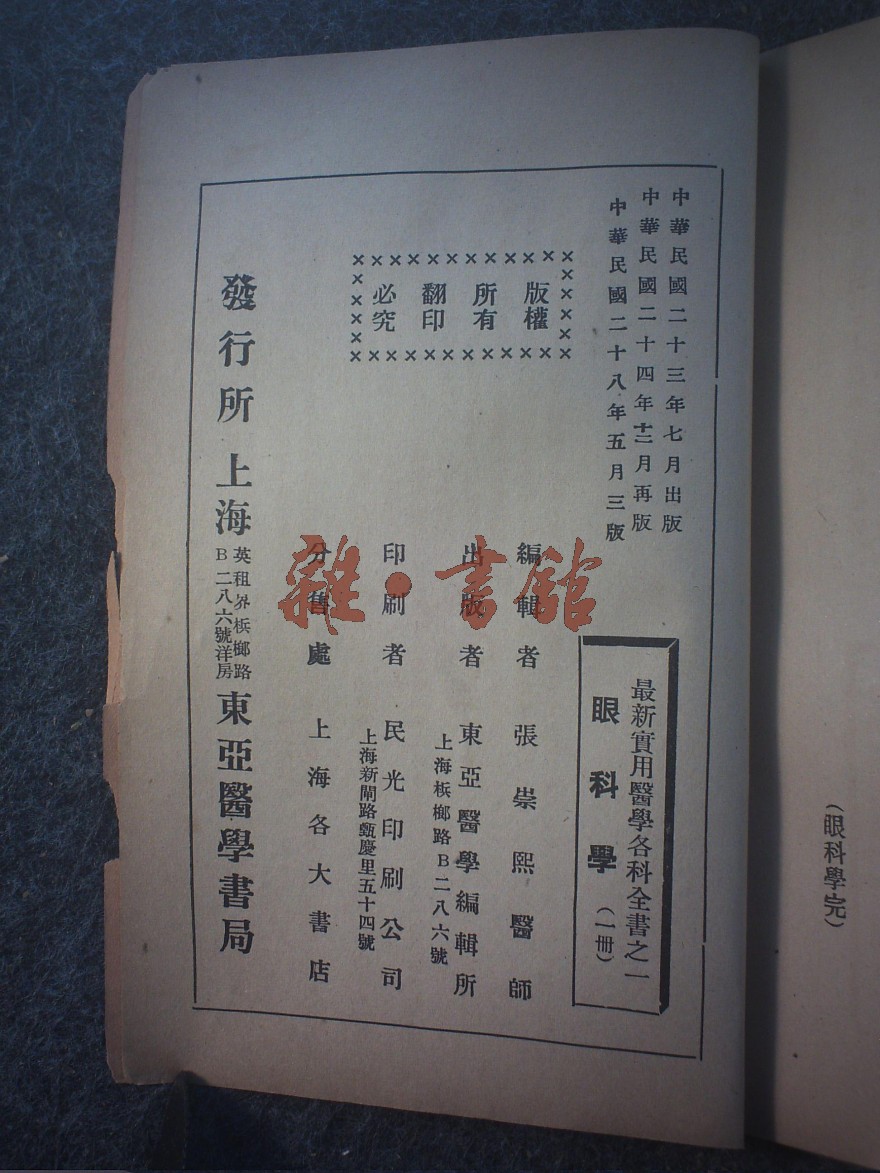 中華民國二十三年七月出版
中華民國二十四年十二月再版
中華民國二十八年五月三版
版權
所有
翻印
必究
最新實用醫學各科全書之一
眼科學(一冊)
編輯者 張崇熙醫師
出版者 東亞醫學編輯所
上海梹榔路B二八六號
印刷者 民光印刷公司
上海新閘路甄慶里五十四號
分售處 上海各大書店
發行所 上海
英租界梹榔路
B二八六號洋房
東亞醫學書局
(眼科學完)
雜·書館